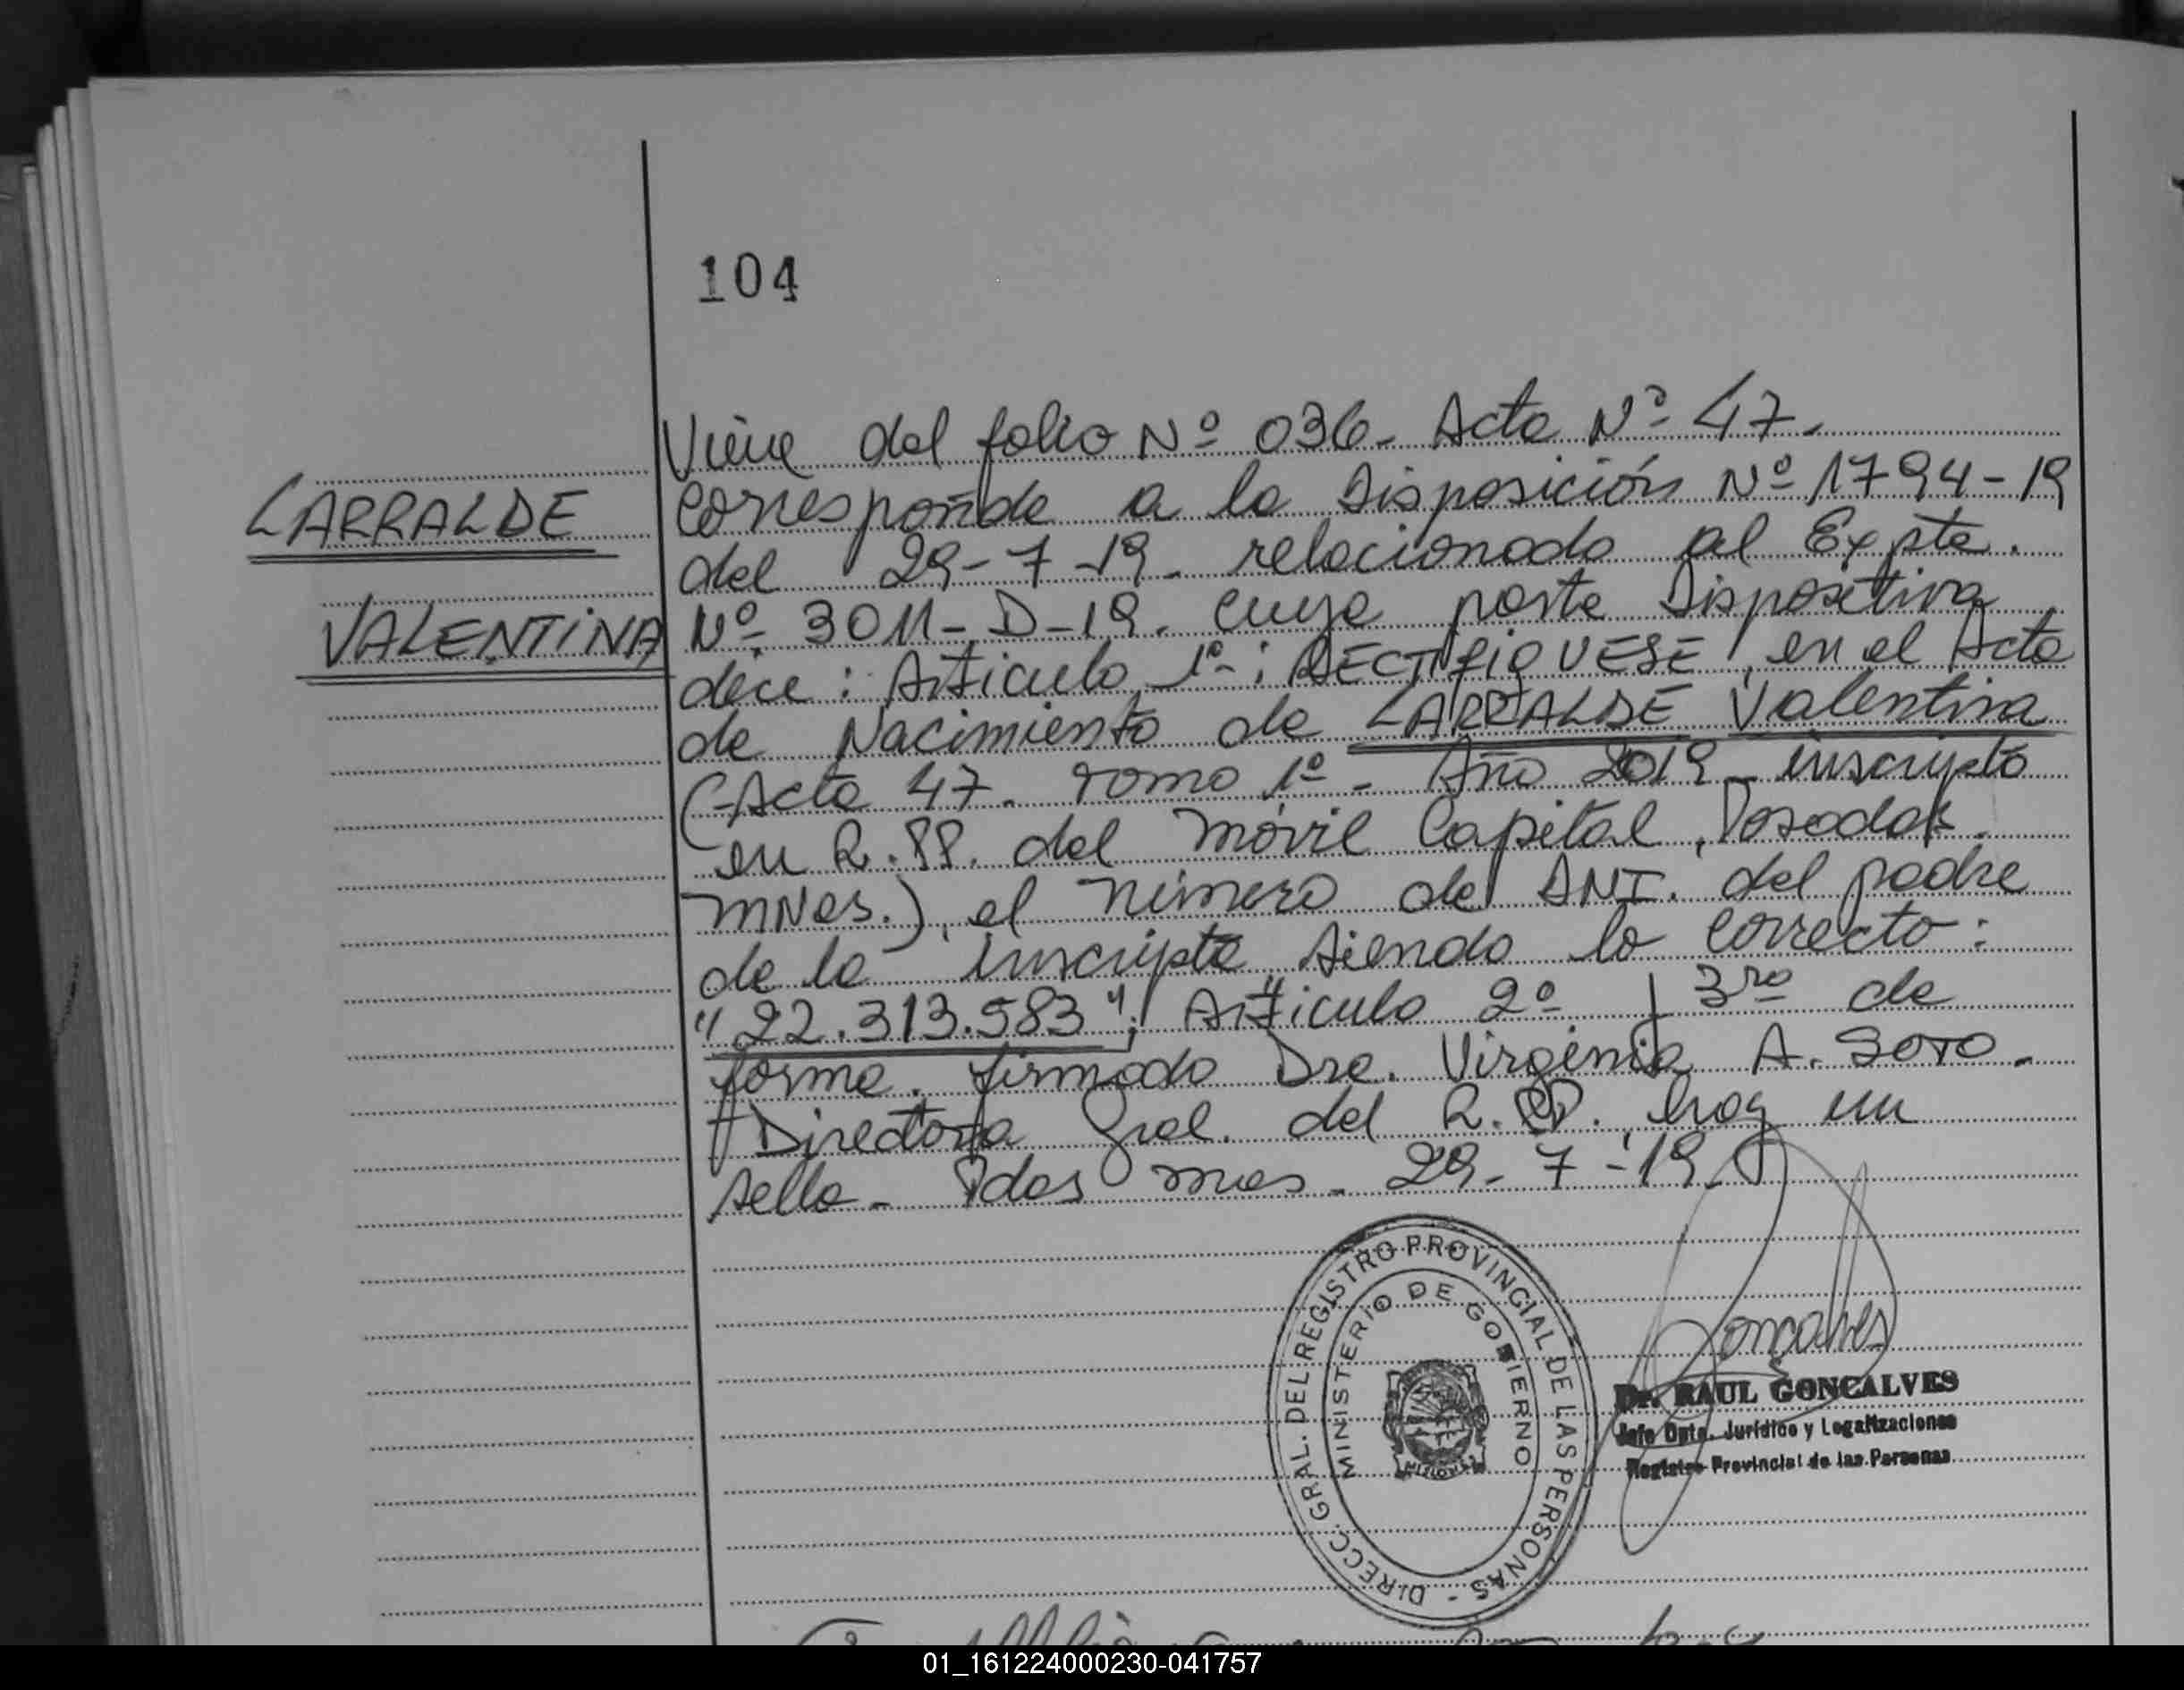 104
Viene del folio Nº 036. Acta Nº 47.
LARRALDE
Corresponde a la Disposición Nº 1794-19
del 29-7-19. relacionado al Expte.
VALENTINA
Nº 3011-D-19. cuya parte Dispositiva
dice: Articulo 1º: RECTIFIQUESE, en el Acta
de Nacimiento de LARRALDE Valentina
(Acta 47. Tomo 1º - Año 2019 - inscripto
en R.PP. del Móvil Capital, Posadas.
MNes.), el número de DNI. del padre
de la inscripta siendo lo correcto:
"22.313.583"; Articulo 2º y 3ro de
forma. firmado Dra. Virginia A. SOTO.
Directora Gral. del R.PP. hay un
sello - Pdas mnes. 29-7-19.
DIRECC. GRAL. DEL REGISTRO PROVINCIAL DE LAS PERSONAS -
MINISTERIO DE GOBIERNO
MISIONES
Goncalves
Dr. RAUL GONCALVES
Jefe Dpto. Jurídico y Legalizaciones
Registro Provincial de las Personas
01_161224000230-041757